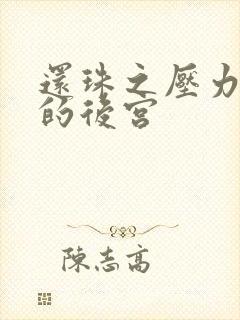 還珠之壓力
的後宮
陳志高